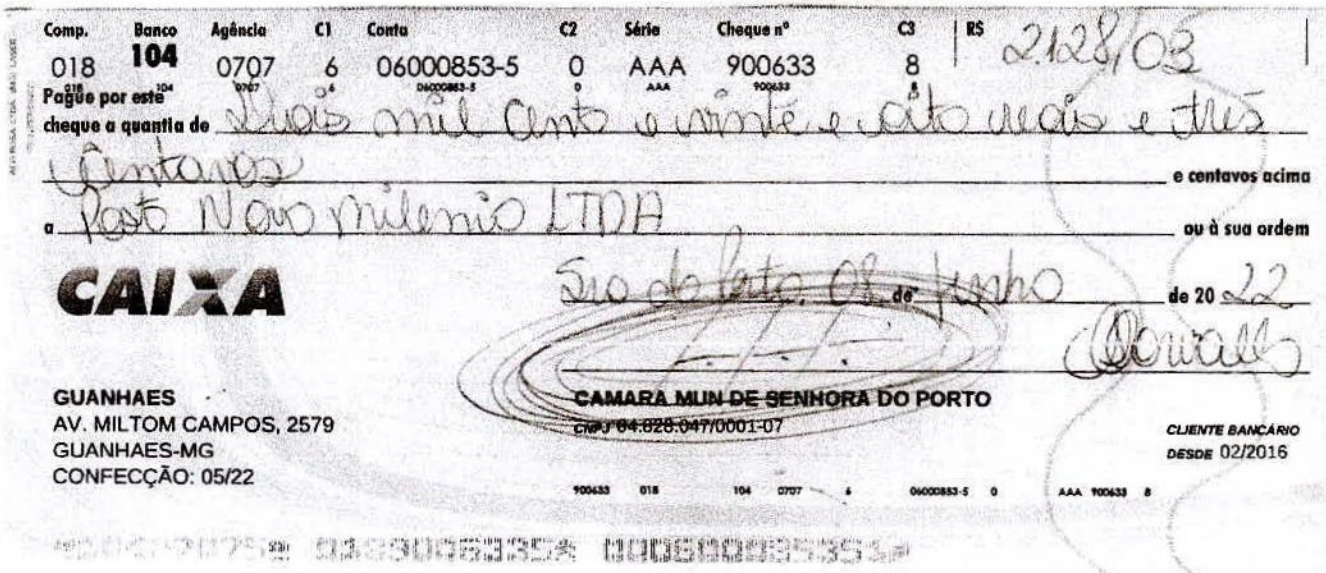 Comp. Banco Agência C1 Conta C2 Série Cheque nº C3 R$ 2.128/03
018 104 0707 6 06000853-5 0 AAA 900633 8
018 104 0707 6 06000853-5 0 AAA 900633 8
Pague por este
cheque a quantia de Dois mil cento e vinte e oito reais e três
centavos e centavos acima
a Posto Novo milenio LTDA ou à sua ordem
CAIXA
Sra do Porto, 02 de Junho de 20 22
GUANHAES
AV. MILTOM CAMPOS, 2579
GUANHAES-MG
CONFECÇÃO: 05/22
CAMARA MUN DE SENHORA DO PORTO
CNPJ 04.828.047/0001-07
CLIENTE BANCÁRIO
DESDE 02/2016
900633 018 104 0707 6 06000853-5 0 AAA 900633 8